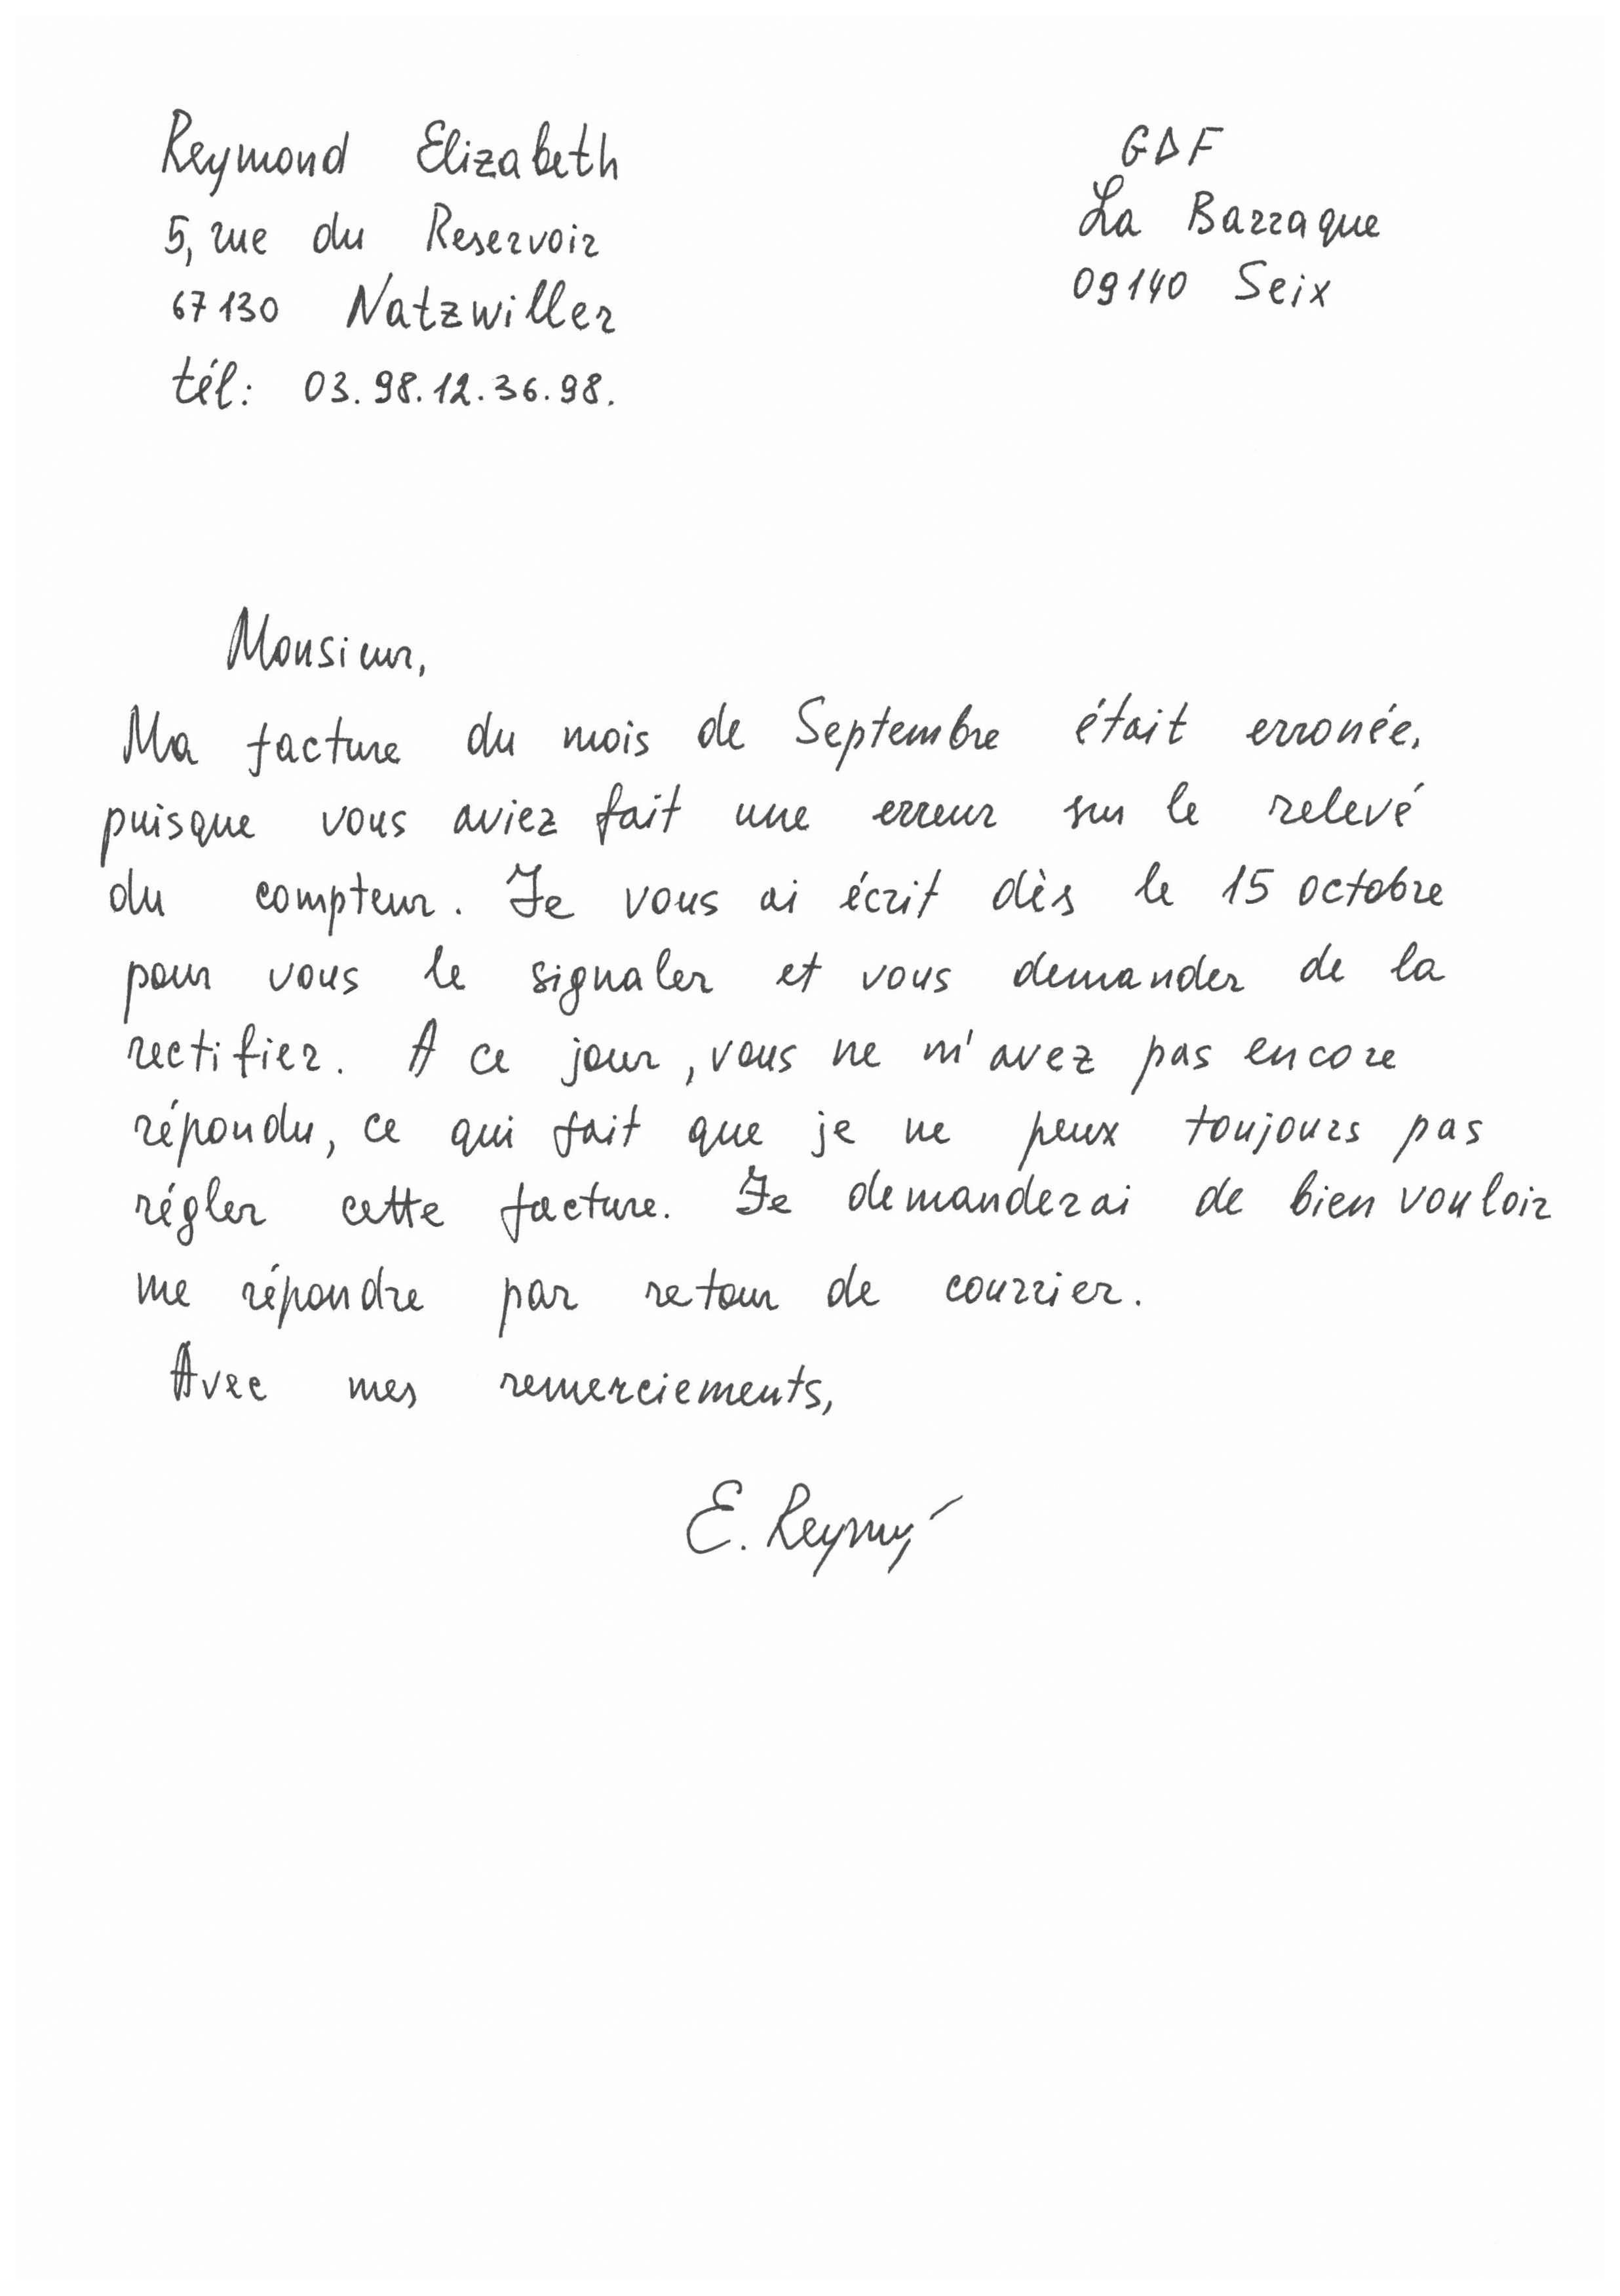 Reymond Elizabeth
5, rue du Reservoir
67130 Natzwiller
tél: 03.98.12.36.98.
GDF
La Barraque
09140 Seix
Monsieur,
Ma facture du mois de Septembre était erronée,
puisque vous aviez fait une erreur sur le relevé
du compteur. Je vous ai écrit dès le 15 octobre
pour vous le signaler et vous demander de la
rectifier. A ce jour, vous ne m'avez pas encore
répondu, ce qui fait que je ne peux toujours pas
régler cette facture. Je demanderai de bien vouloir
me répondre par retour de courrier.
Avec mes remerciements,
E. Reymond